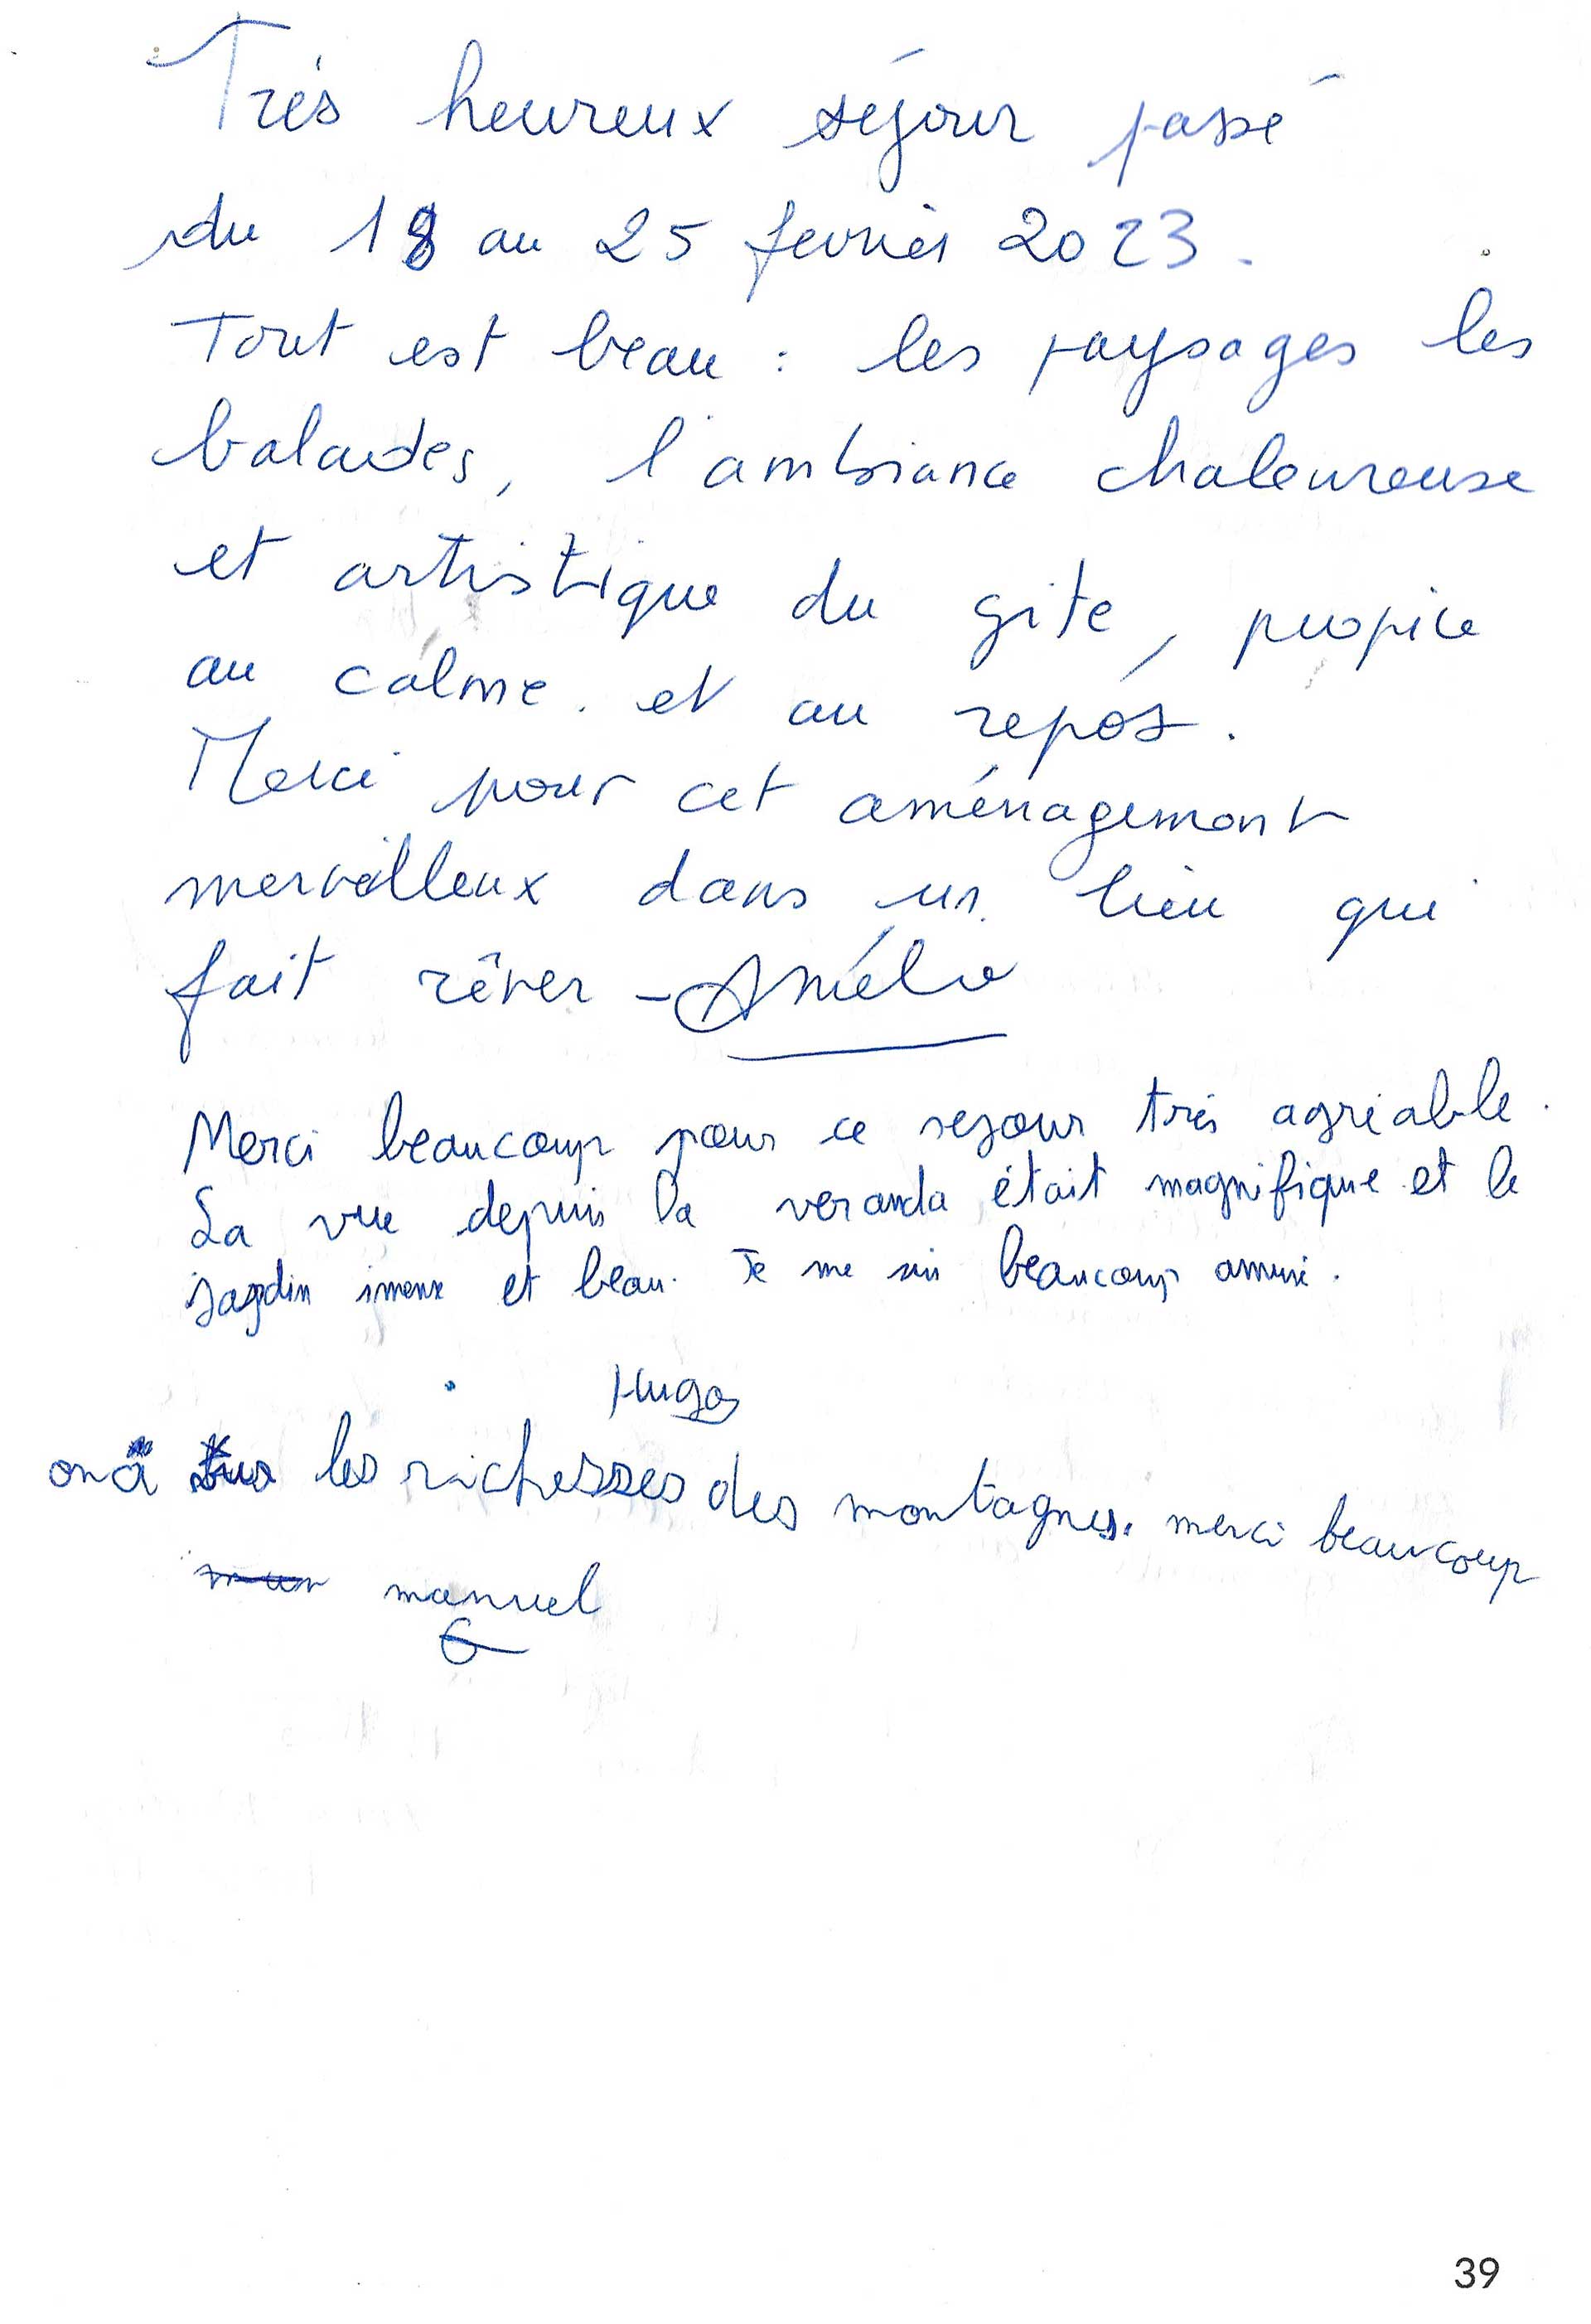 Très heureux séjour passé
du 18 au 25 février 2023.
Tout est beau : les paysages les
balades, l'ambiance chaleureuse
et artistique du gite, propice
au calme et au repos.
Merci pour cet aménagement
merveilleux dans un lieu qui
fait rêver - Amélie
Merci beaucoup pour ce sejour très agréable.
La vue depuis la veranda était magnifique et le
jardin imense et beau. Je me suis beaucoup amusé.
Hugo
on a les richesses des montagnes. merci beaucoup
manuel
39